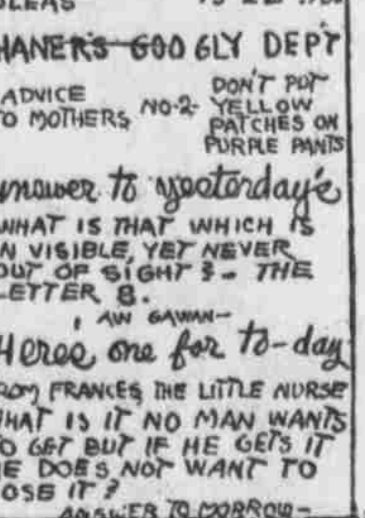 HANER'S GOO GLY DEP'T
ADVICE
TO MOTHERS NO-2-
DON'T PUT
YELLOW
PATCHES ON
PURPLE PANTS
nswer to yesterday's
WHAT IS THAT WHICH IS
N VISIBLE, YET NEVER
OUT OF SIGHT? - THE
LETTER S.
AW GAWAN-
Heres one for to-day
ROM FRANCES THE LITTLE NURSE
WHAT IS IT NO MAN WANTS
TO GET BUT IF HE GETS IT
HE DOES NOT WANT TO
OSE IT?
ANSWER TO MORROW-